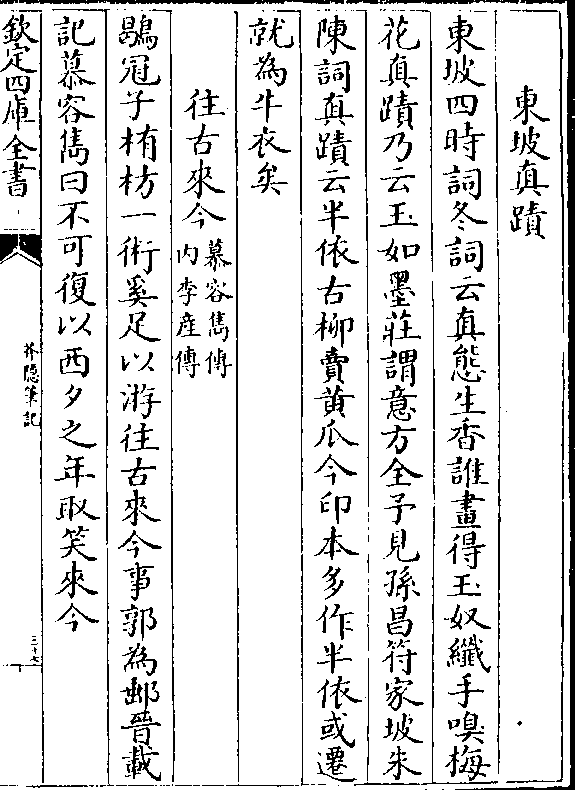 東坡真蹟
東坡四時詞冬詞云真態生香誰畫得玉奴纖手嗅梅
花真蹟乃云玉如墨莊謂意方全予見孫昌符家坡朱
陳詞真蹟云半依古柳賣黄瓜今印本多作半依或遷
就為牛衣矣
往古來今慕容雋傳
内李産傳
鶡冠子栯枋一術奚足以游往古來今事郭為邮晉載
記慕容雋曰不可復以西夕之年取笑來今
欽定四庫全書
芥隠筆記
三十七